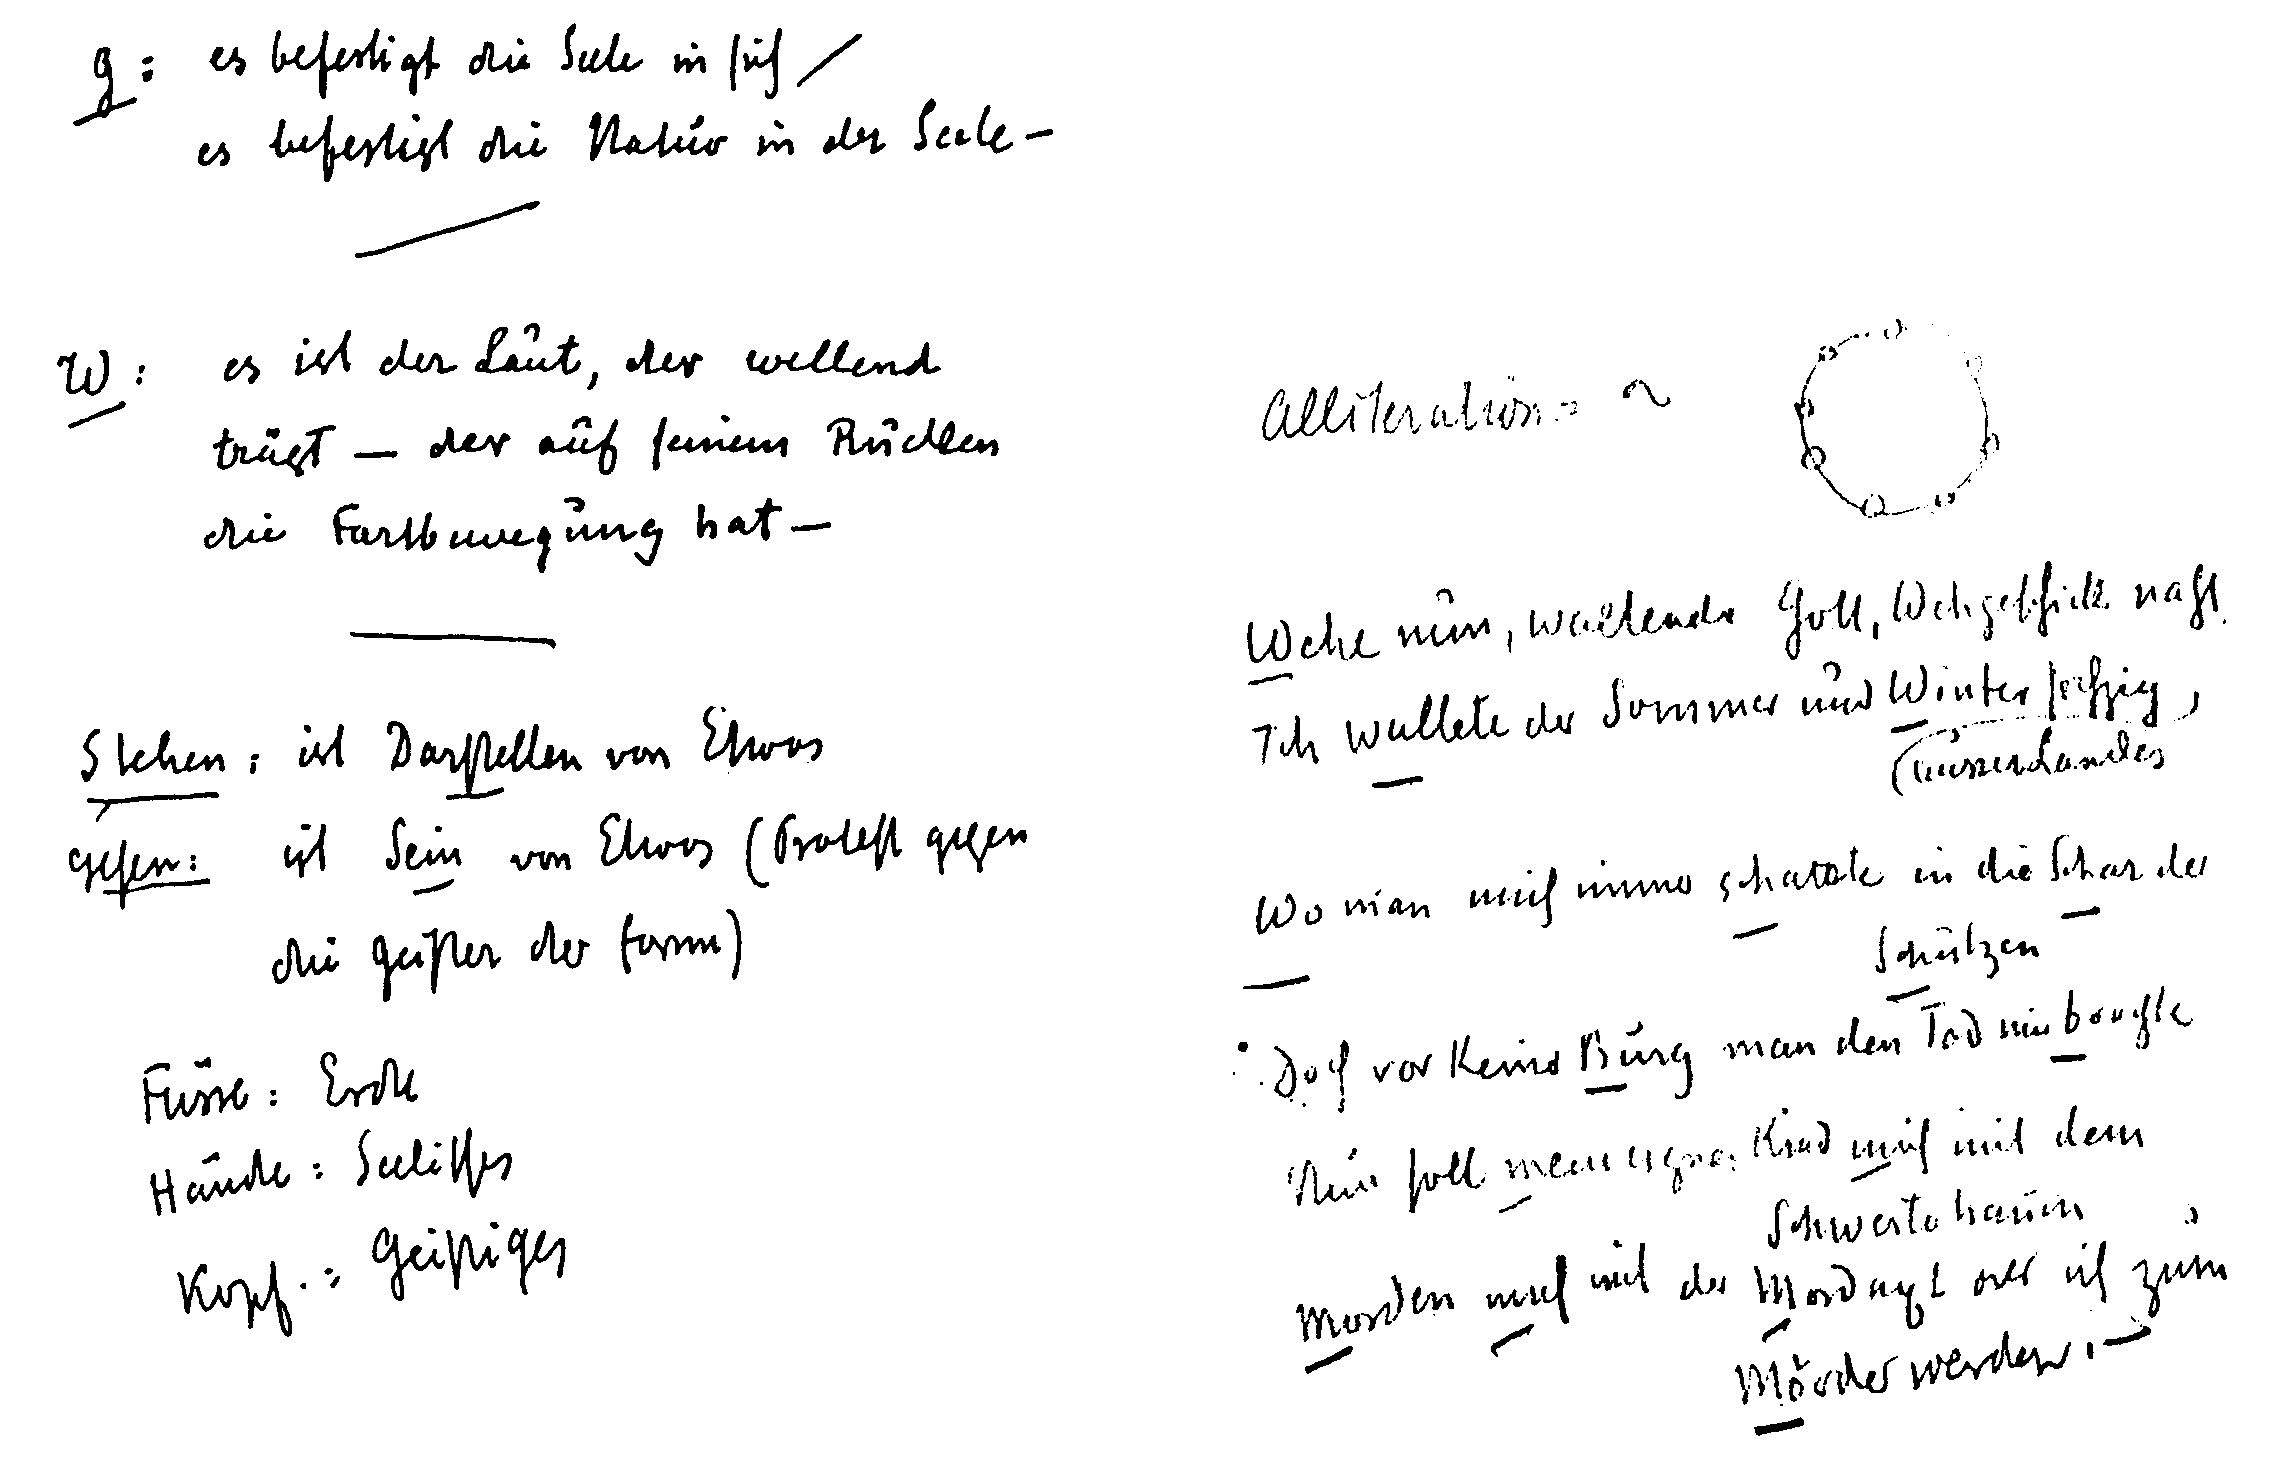 g: es befestigt die Seele in sich /
es befestigt die Natur in der Seele –
W: es ist der Laut, der wellend
trägt – der auf seinem Rücken
die Fortbewegung hat –
Stehen: ist Darstellen von Etwas
gehen: ist Sein von Etwas (Protest gegen
die Geister der Form)
Füsse: Erde
Hände: Seelisches
Kopf.: Geistiges
Alliteration:
Wehe nun, waltender Gott, Wehgeschick naht.
Ich wallete der Sommer und Winter sechzig,
(ausser Landes
Wo man mich immer scharte in die Schar der
Schützen
Doch vor keiner Burg man den Tod mir brachte
Nun soll mein eigenes Kind mich mit dem
Schwerte hauen
Morden mich mit der Mordaxt oder ich zum
Mörder werden. –